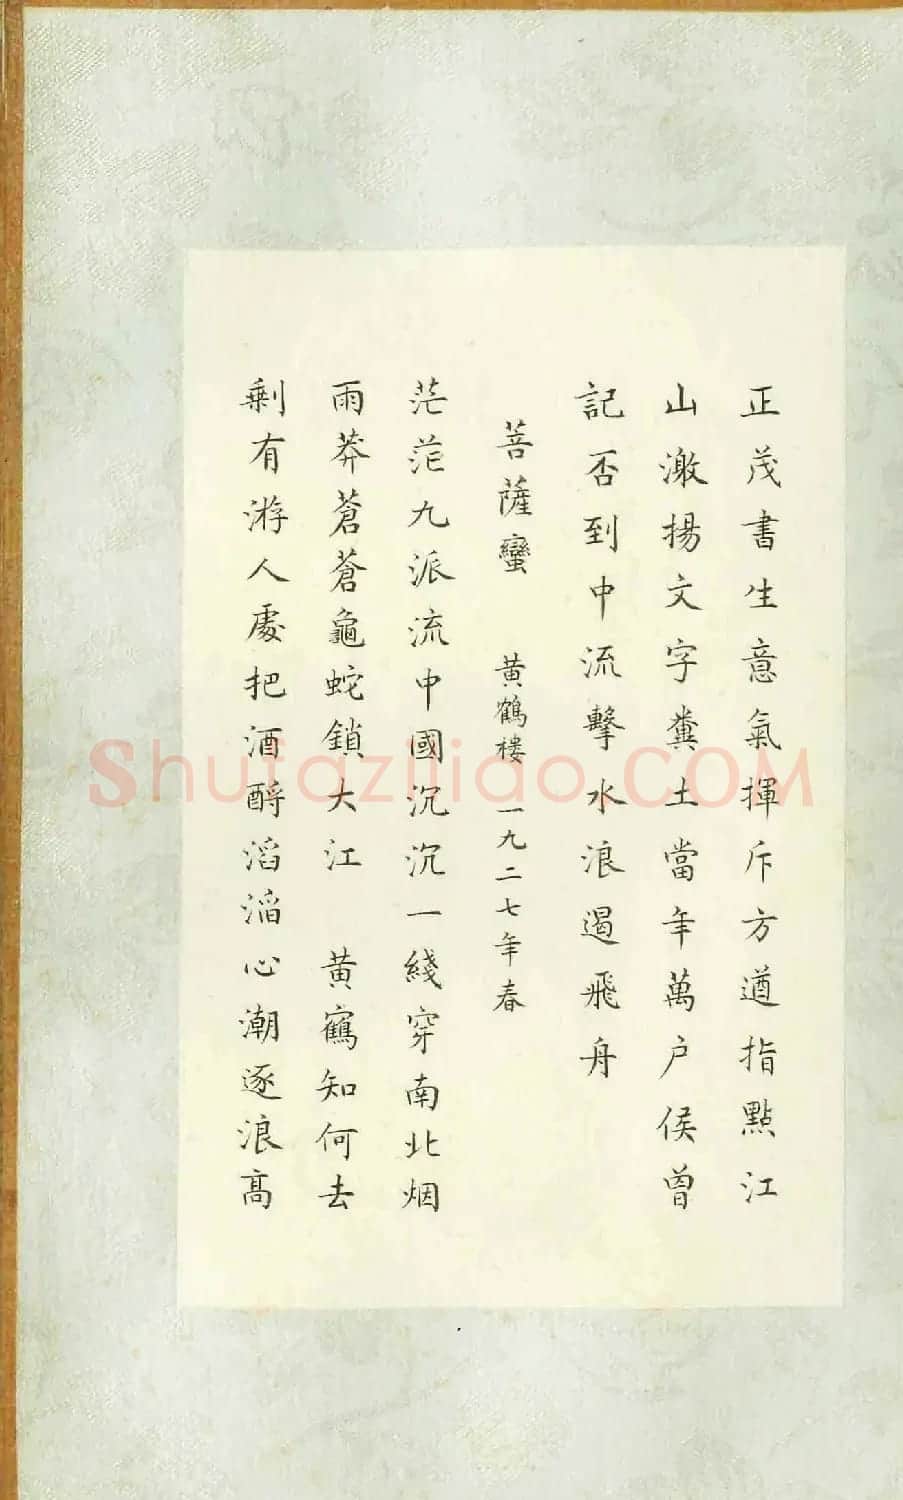 正茂書生意氣揮斥方遒指點江
山激揚文字糞土當年萬户侯曾
記否到中流擊水浪遏飛舟
菩薩蠻 黄鶴樓 一九二七年春
茫茫九派流中國沉沉一綫穿南北烟
雨莽蒼蒼龜蛇鎖大江 黄鶴知何去
剩有游人處把酒酹滔滔心潮逐浪高
Shufaziliao.COM